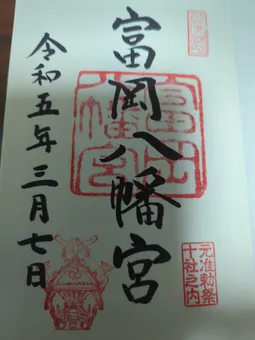 富岡八幡宮
令和五年三月七日
富岡
八幡宮
元准勅祭
十社之内